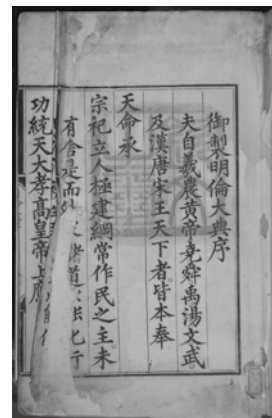 御製明倫大典序
夫自羲農黃帝堯舜禹湯文武
及漢唐宋王天下者皆本奉
天命承
宗祀立人極建綱常作民之主未
有舍是而
功統天大孝高皇帝上